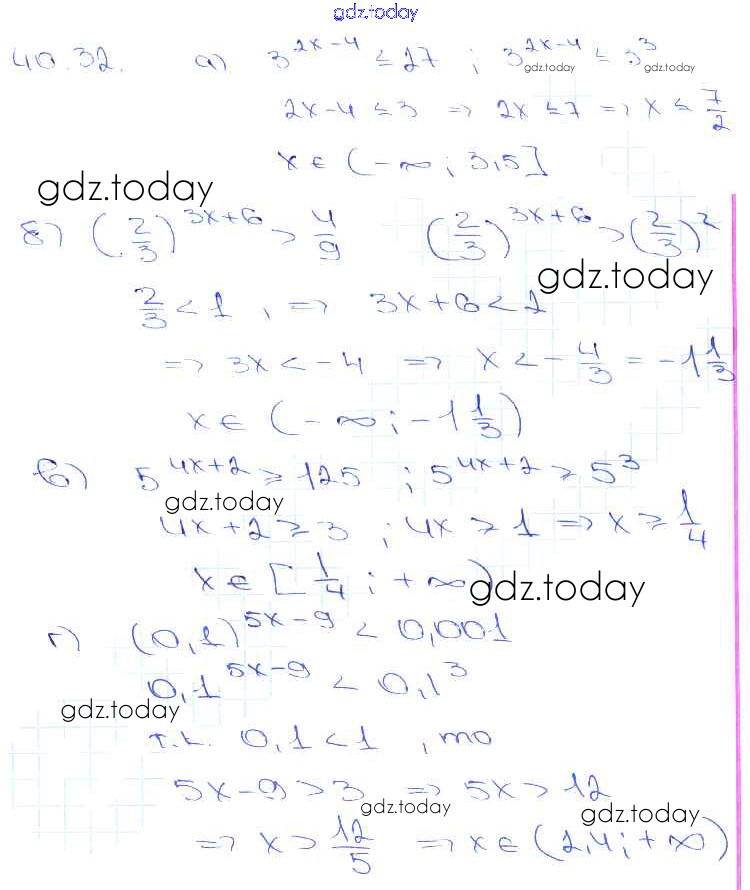 gdz.today
40.32. а) 3^{2x-4} ≤ 27 ; 3^{2x-4} ≤ 3^3
gdz.today gdz.today
2x-4 ≤ 3 => 2x ≤ 7 => x ≤ 7/2
x ∈ (-∞ ; 3,5]
gdz.today
б) (2/3)^{3x+6} > 4/9 (2/3)^{3x+6} > (2/3)^2
gdz.today
2/3 < 1 , => 3x+6 < 2
=> 3x < -4 => x < -4/3 = -1 1/3
x ∈ (-∞ ; -1 1/3)
в) 5^{4x+2} ≥ 125 ; 5^{4x+2} ≥ 5^3
gdz.today
4x+2 ≥ 3 ; 4x ≥ 1 => x ≥ 1/4
x ∈ [1/4 ; +∞)
gdz.today
г) (0,1)^{5x-9} < 0,001
0,1^{5x-9} < 0,1^3
gdz.today
т.к. 0,1 < 1 , то
5x-9 > 3 => 5x > 12
gdz.today
gdz.today
=> x > 12/5 => x ∈ (2,4 ; +∞)